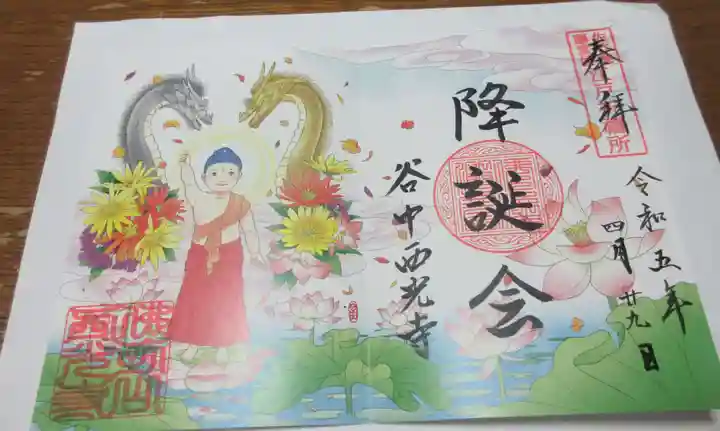 奉拝
令和五年
四月廿九日
降誕会
谷中西光寺